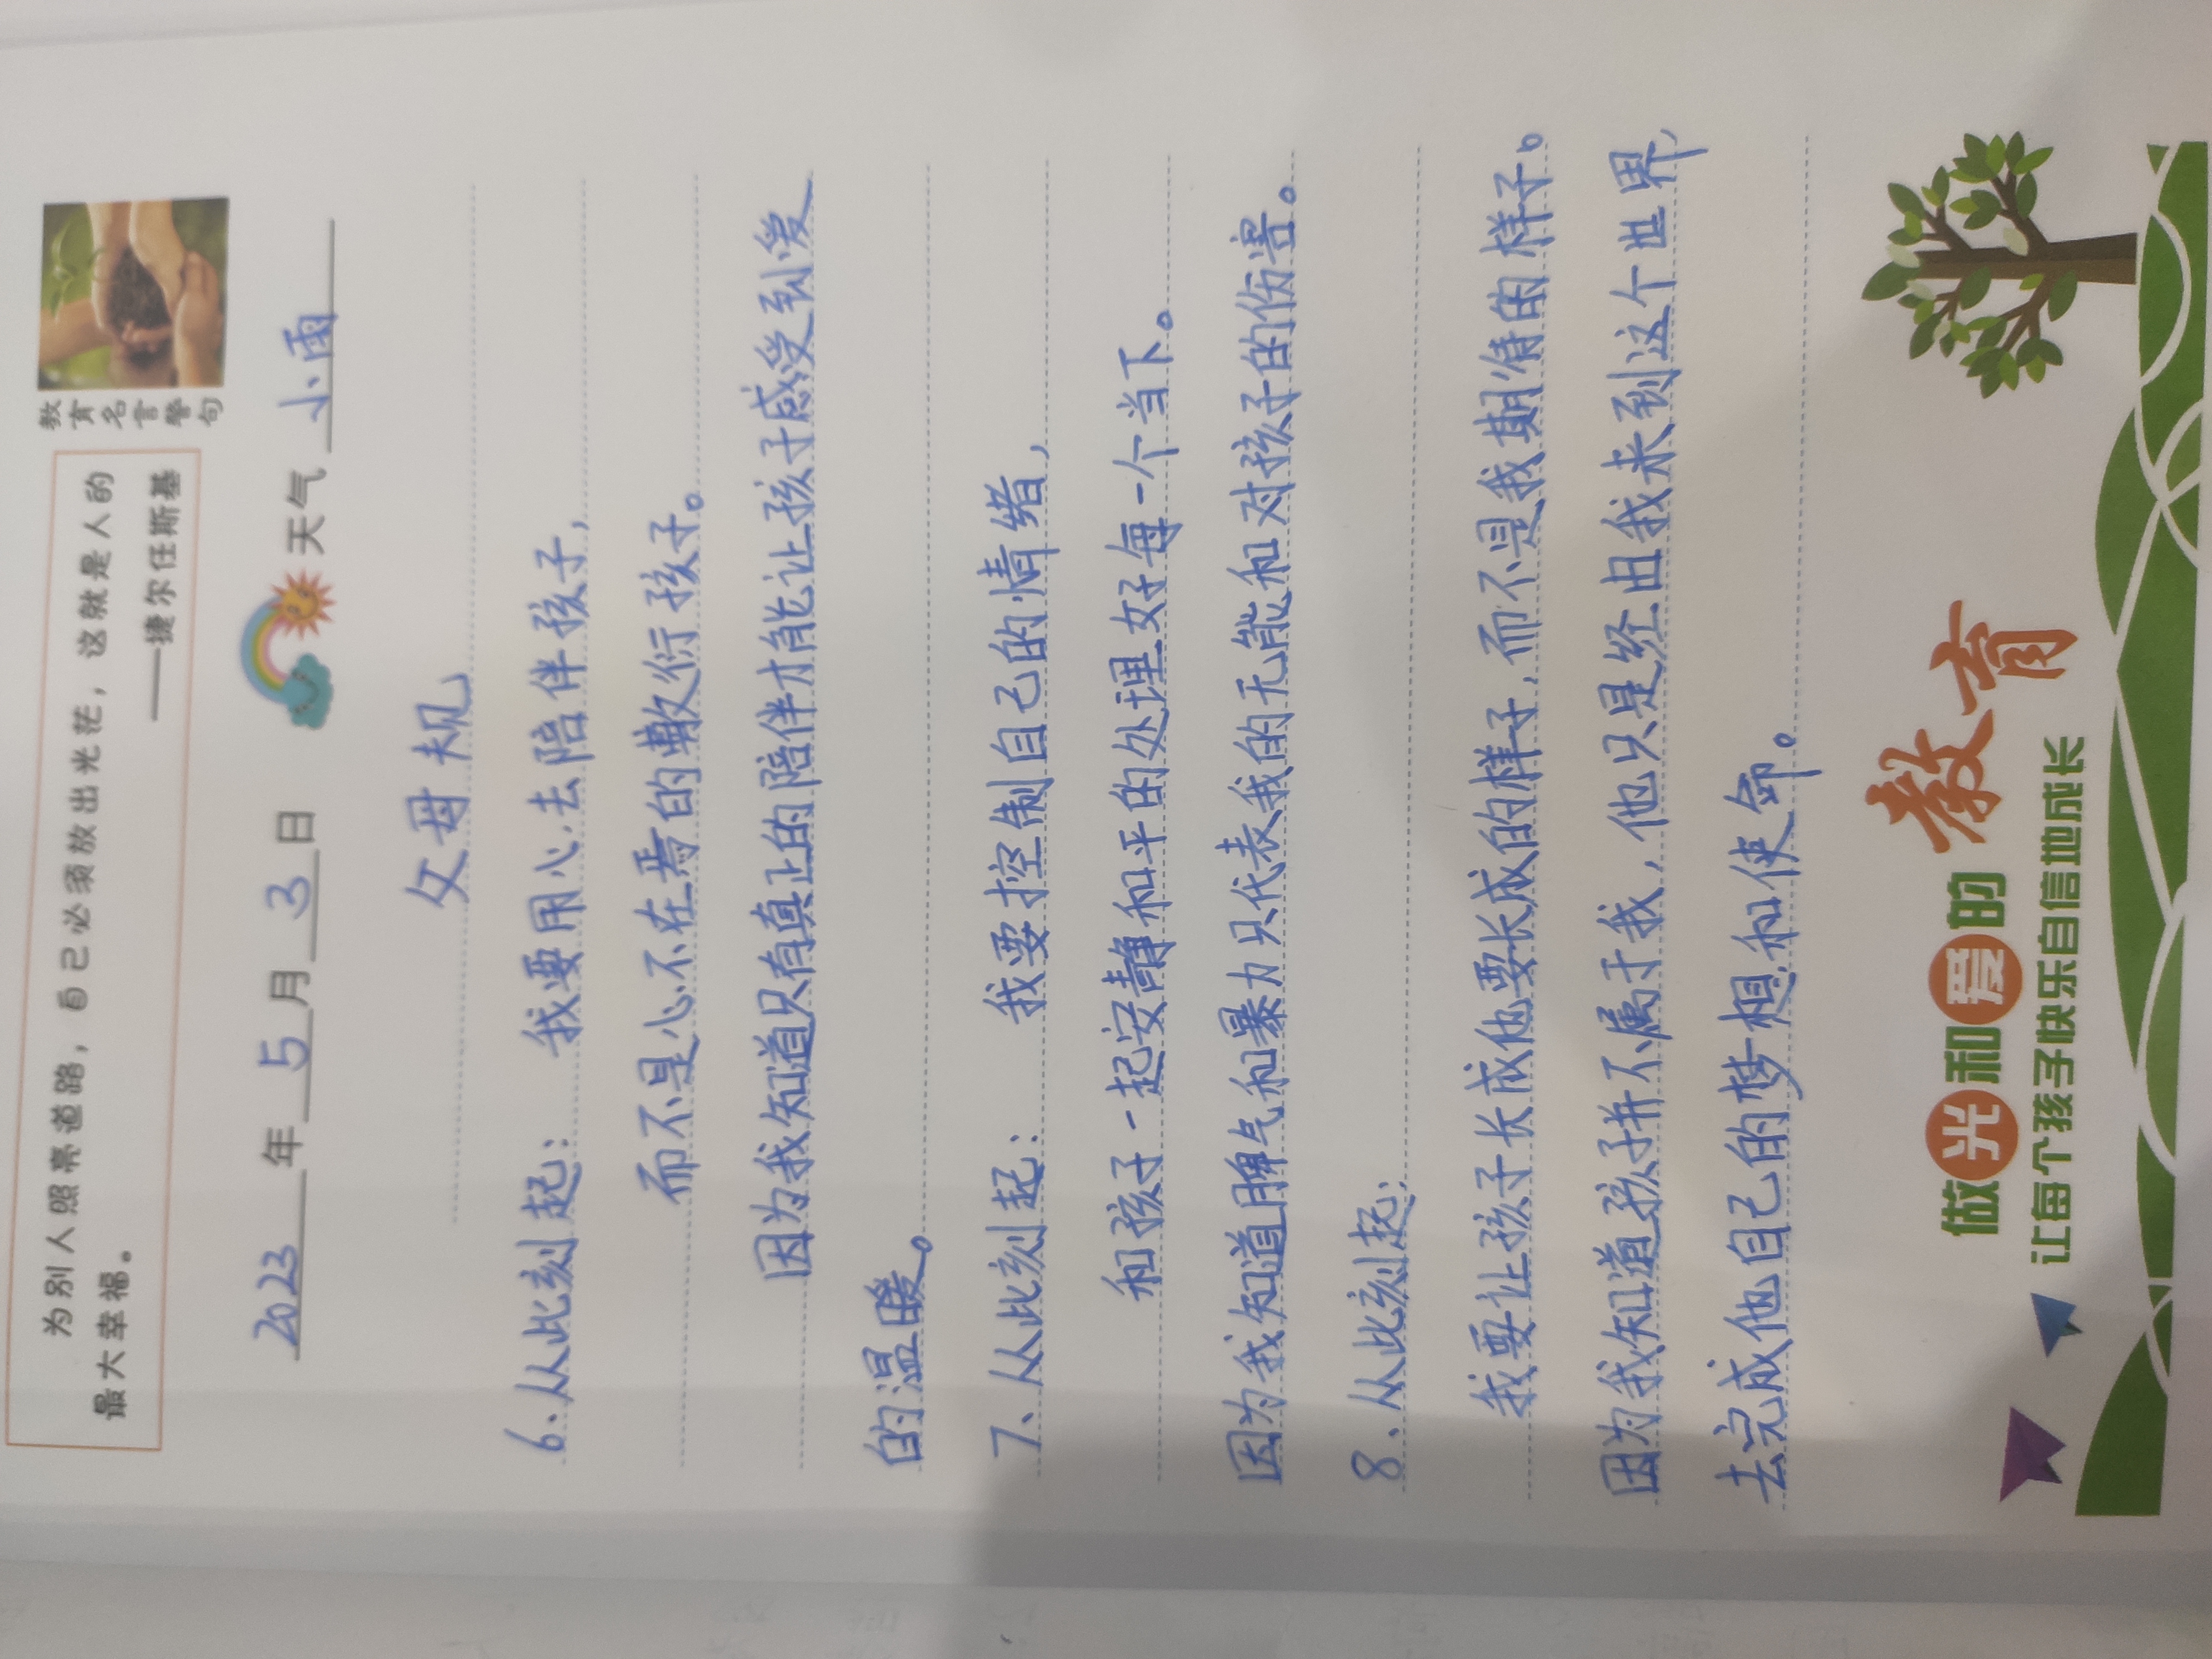 为别人照亮道路，自己必须放出光芒，这就是人的
最大幸福。
——捷尔任斯基
教育名言警句
2023年5月3日 天气 小雨
父母规
6、从此刻起：我要用心去陪伴孩子，
而不是心不在焉的敷衍孩子。
因为我知道只有真正的陪伴才能让孩子感受到爱
的温暖。
7、从此刻起：我要控制自己的情绪，
和孩子一起安静和平的处理好每一个当下。
因为我知道脾气和暴力只代表我的无能和对孩子的伤害。
8、从此刻起：
我要让孩子长成他要长成的样子，而不是我期待的样子。
因为我知道孩子并不属于我，他只是经由我来到这个世界，
去完成他自己的梦想和使命。
做光和爱的教育
让每个孩子快乐自信地成长